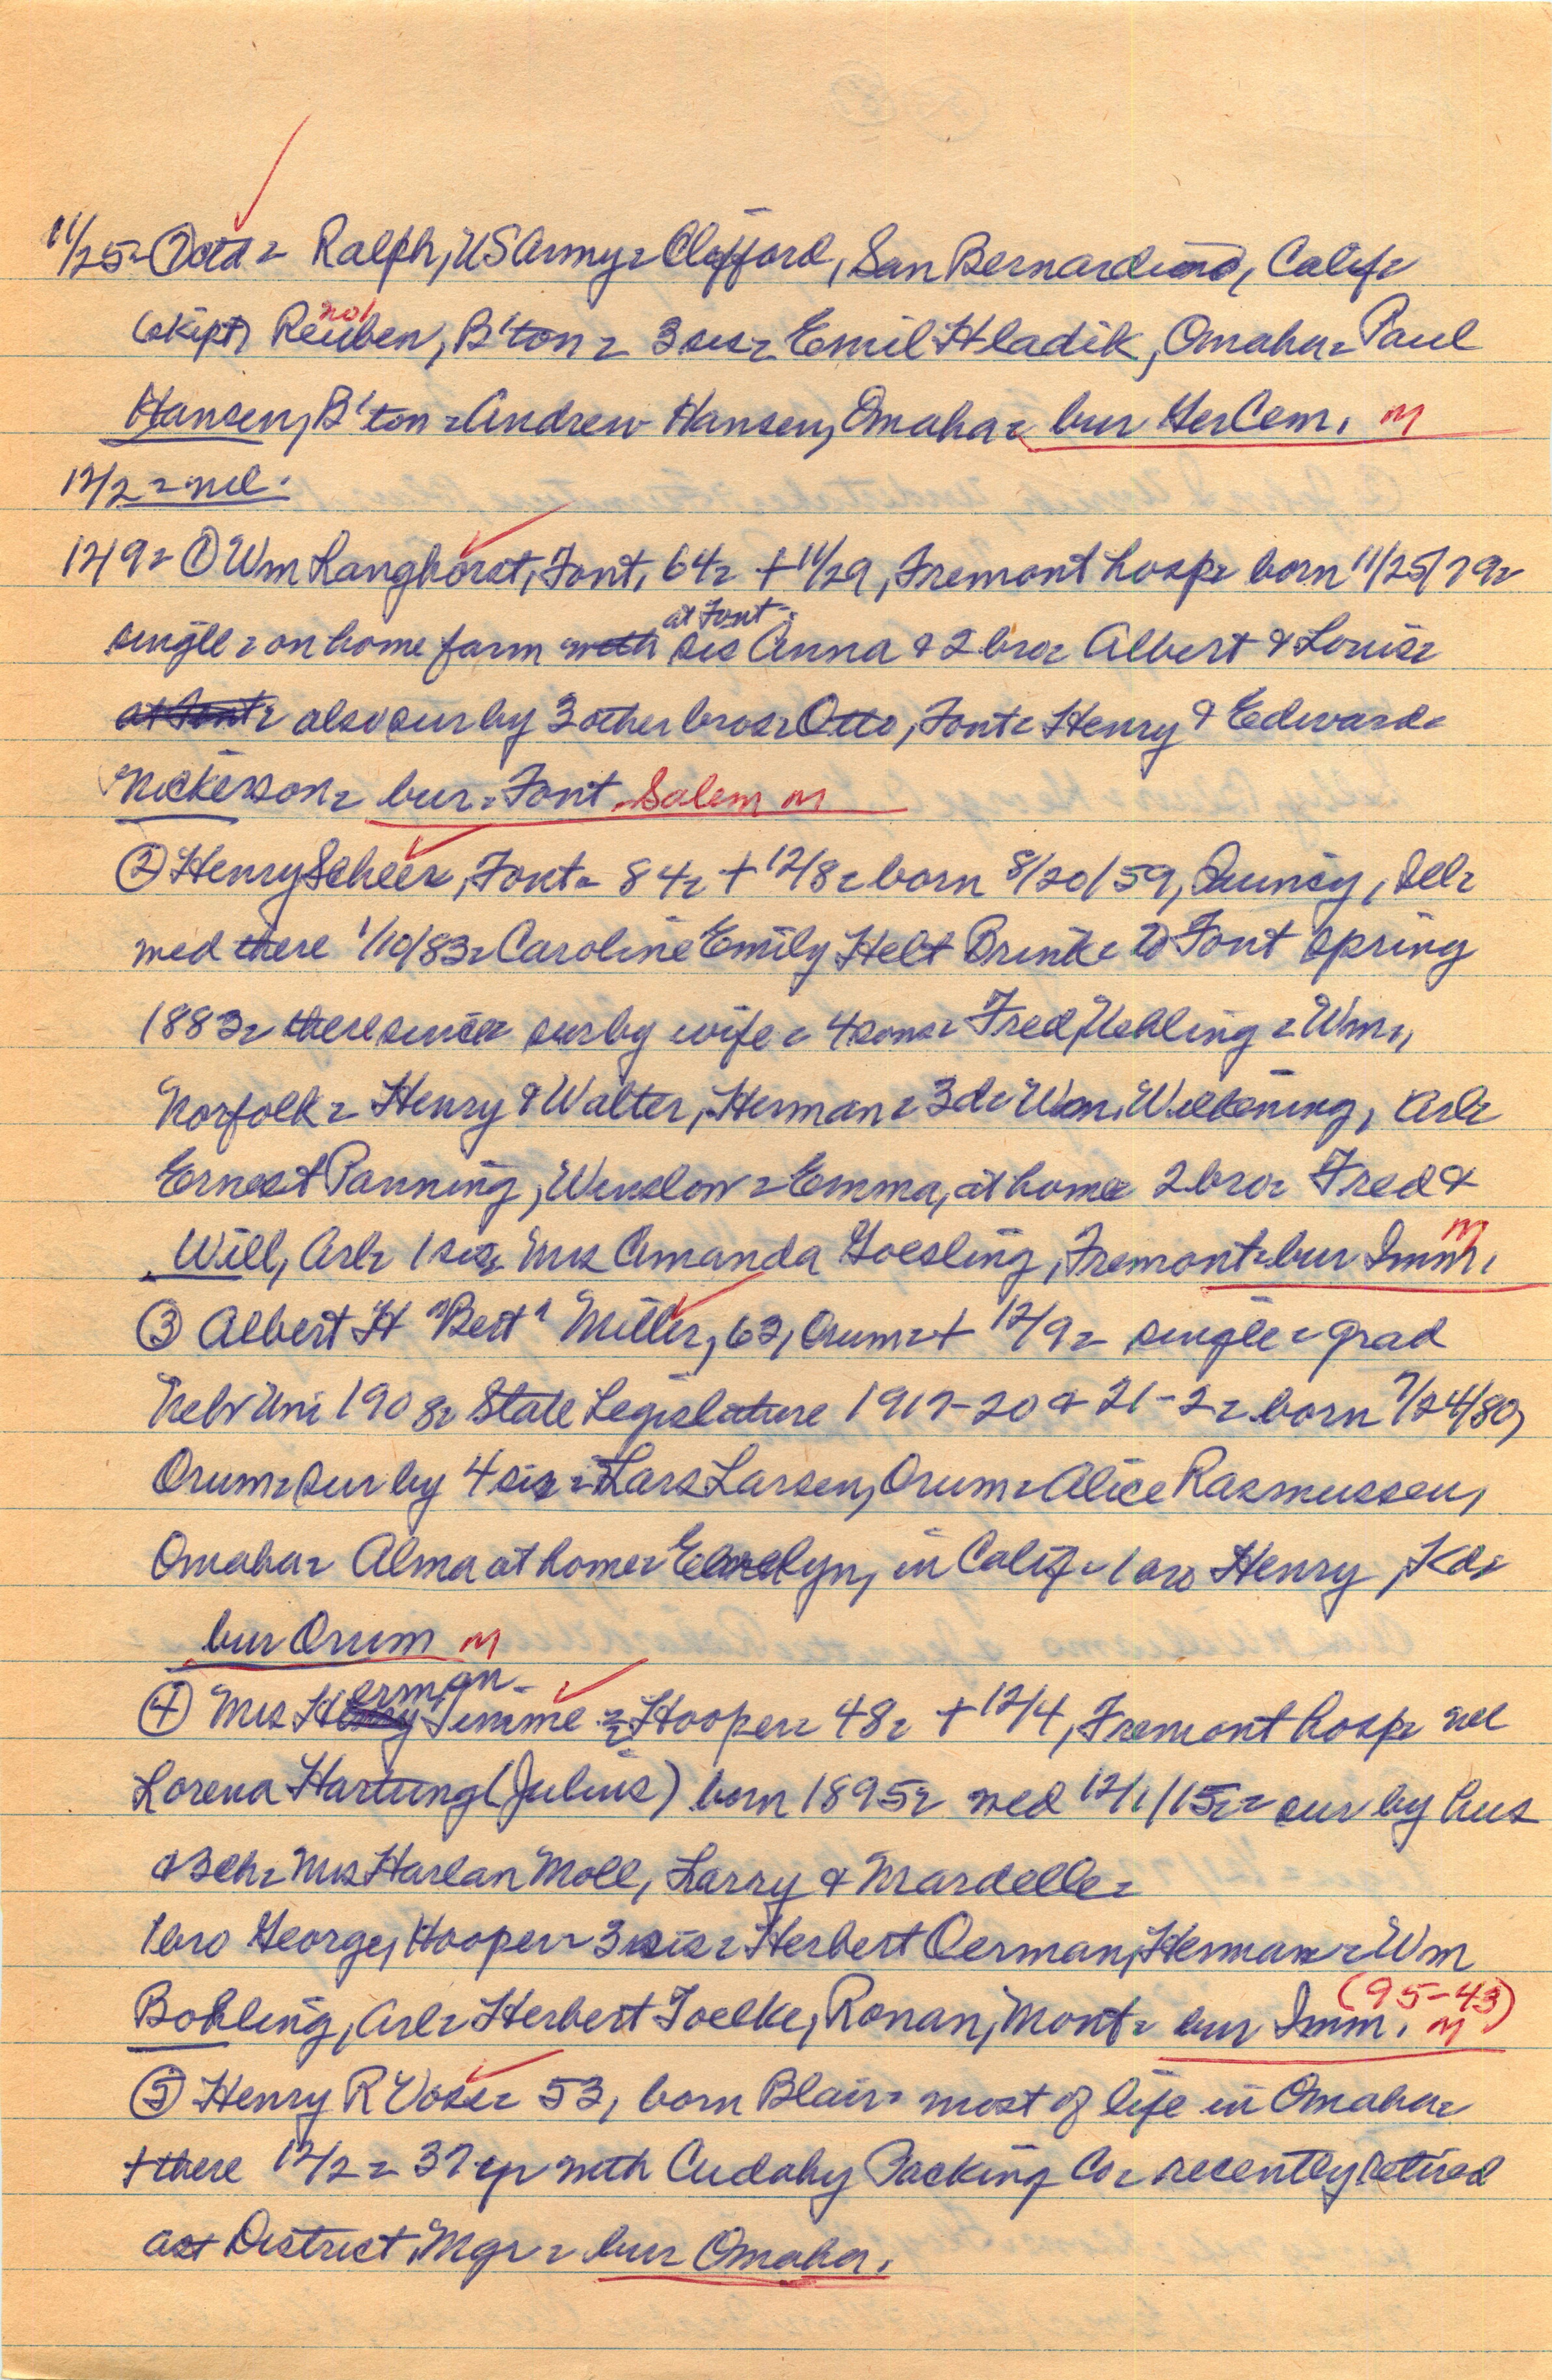 11/25 - ⑦ ctd - Ralph, US Army - Clifford, San Bernardino, Calif -
(skipt) Reuben, B'ton - 3 sis - Emil Hladik, Omaha - Paul
no!
Hansen, B'ton - Andrew Hansen, Omaha - bur Her Cem. M
12/2 = nil.
12/9 - ① Wm Langhorst, Font, 64 - + 11/29, Fremont hosp - born 11/25/79 -
at Font -
single - on home farm with sis Anna & 2 bro - Albert & Louis -
at Font - also sur by 3 other bros - Otto, Font - Henry & Edward -
Nickerson - bur - Font - Salem M
② Henry Scheer, Font - 84 - + 12/8 - born 8/20/59, Quincy, Ill -
med there 1/10/83 - Caroline Emily Helt Brink - to Font spring
1883 - there since - sur by wife - 4 sons - Fred, Uehling - Wm,
Norfolk - Henry & Walter, Herman - 3 d - Wm. Wilkening, Arl -
Ernest Panning, Winslow - Emma, at home - 2 bro - Fred &
Will, Arl - 1 sis, Mrs Amanda Goesling, Fremont - bur Imm. M
③ Albert H "Bert" Miller, 63, Orum - + 12/9 - single - grad
Nebr Uni 1908 - State Legislature 1917-20 & 21-2 - born 7/24/80,
Orum - sur by 4 sis - Lars Larsen, Orum - Alice Rasmussen,
Omaha - Alma at home - Evelyn, in Calif - 1 bro Henry, Kds
bur Orum M
④ Mrs Herman Timme - Hooper - 48 - + 12/4, Fremont hosp - nee
Lorena Hartung (Julius) born 1895 - med 12/1/15 - sur by hus
& 3 ch - Mrs Harlan Moll, Larry & Mardelle -
1 bro George, Hooper - 3 sis - Herbert Oerman, Herman - Wm
Bohling, Arl - Herbert Toelke, Ronan, Mont - bur Imm. M (95-43)
⑤ Henry R Vose - 53, born Blair - most of life in Omaha -
+ there 12/2 - 37 yr with Cudahy Packing Co - recently retired
ast District Mgr - bur Omaha.